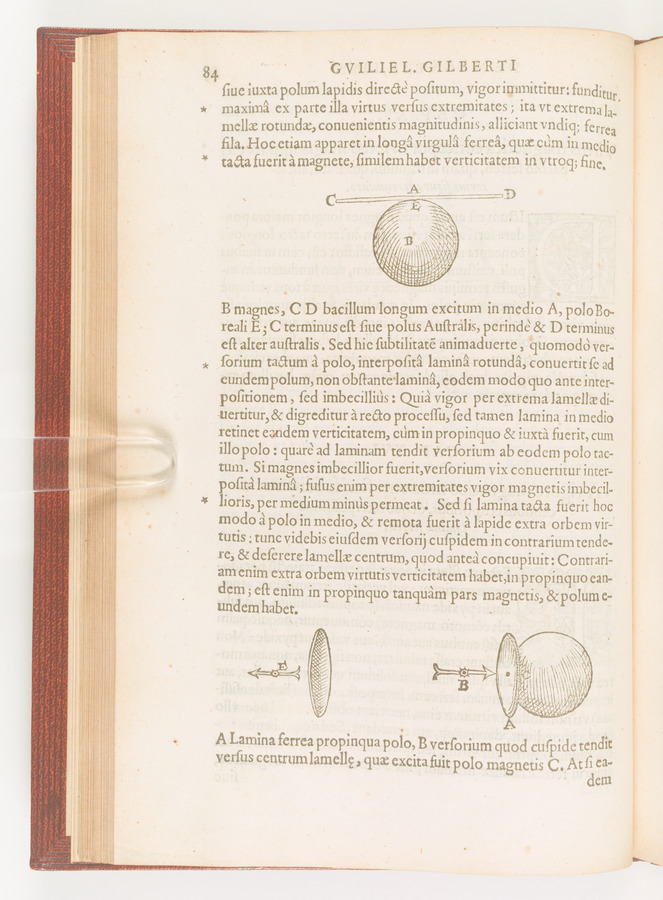 84 GVILIEL. GILBERTI
ſiue iuxta polum lapidis directè poſitum, vigor immittitur: funditur
* maximâ ex parte illa virtus verſus extremitates; ita vt extrema la-
mellæ rotundæ, conuenientis magnitudinis, alliciant vndiq; ferrea
fila. Hoc etiam apparet in longâ virgulâ ferreâ, quæ cùm in medio
* tacta fuerit à magnete, ſimilem habet verticitatem in vtroq; fine.
A
C D
E
B
B magnes, C D bacillum longum excitum in medio A, polo Bo-
reali E; C terminus eſt ſiue polus Auſtrális, perindè & D terminus
eſt alter auſtralis. Sed hîc ſubtilitatē animaduerte, quomodò ver-
* ſorium tactum à polo, interpoſitâ laminâ rotundâ, conuertit ſe ad
eundem polum, non obſtante laminâ, eodem modo quo ante inter-
poſitionem, ſed imbecilliùs: Quià vigor per extrema lamellæ di-
uertitur, & digreditur à recto proceſſu, ſed tamen lamina in medio
retinet eandem verticitatem, cùm in propinquo & iuxtà fuerit, cum
illo polo: quarè ad laminam tendit verſorium ab eodem polo tac-
tum. Si magnes imbecillior fuerit, verſorium vix conuertitur inter-
poſitâ laminâ; fuſus enim per extremitates vigor magnetis imbecil-
* lioris, per medium minùs permeat. Sed ſi lamina tacta fuerit hoc
modo à polo in medio, & remota fuerit à lapide extra orbem vir-
tutis: tunc videbis eiuſdem verſorij cuſpidem in contrarium tende-
re, & deſerere lamellæ centrum, quod anteà concupiuit: Contrari-
am enim extra orbem virtutis verticitatem habet, in propinquo ean-
dem; eſt enim in propinquo tanquàm pars magnetis, & polum e-
undem habet.
E
B
A
A Lamina ferrea propinqua polo, B verſorium quod cuſpide tendit
verſus centrum lamellę, quæ excita fuit polo magnetis C. At ſi ea-
dem